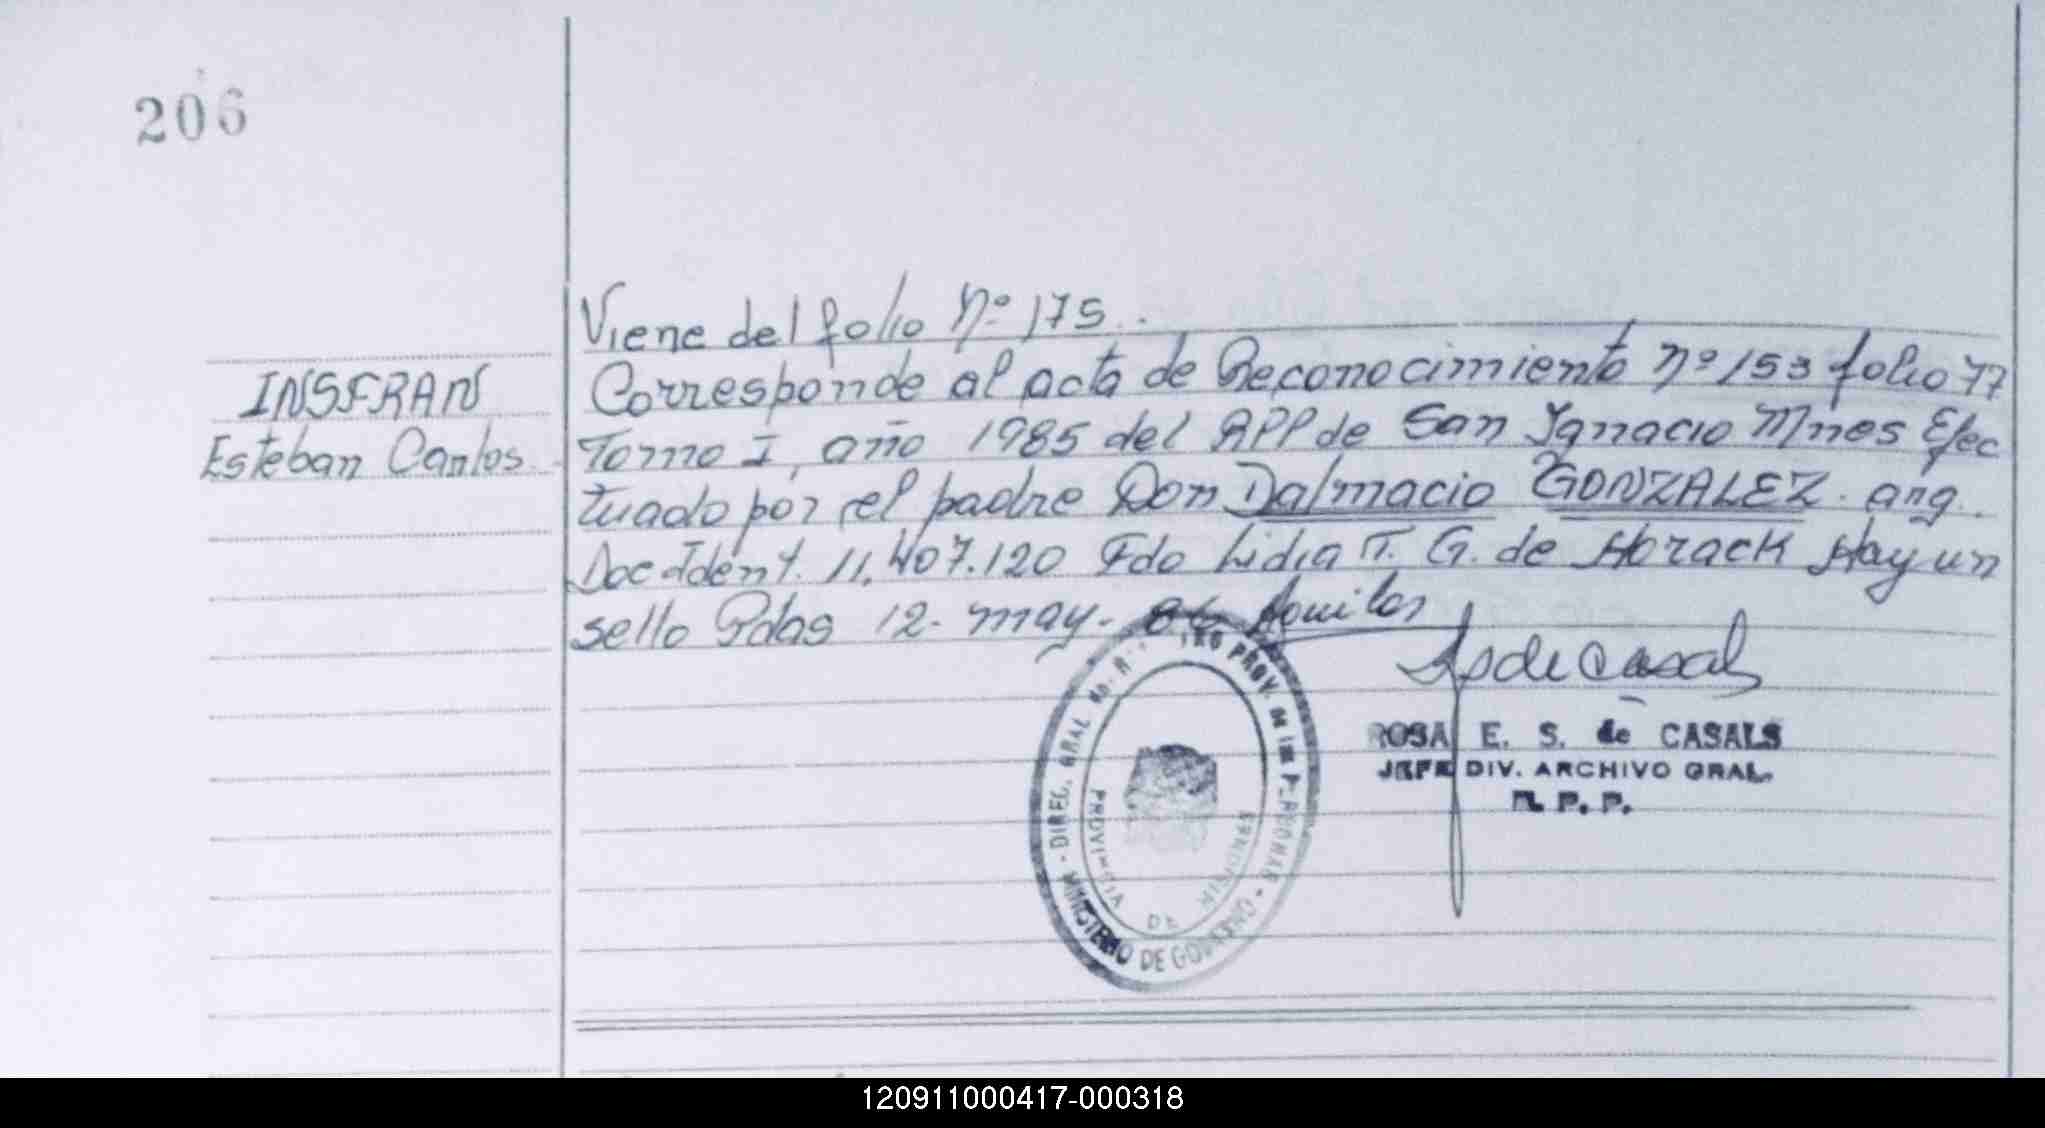 206
Viene del folio Nº 175.
INSFRAN
Esteban Carlos.
Corresponde al acta de Reconocimiento Nº 153 folio 77
Tomo I, año 1985 del RPP de San Ignacio Mnes Efec
tuado por el padre Don Dalmacio GONZALEZ. arg.
Doc Ident. 11.407.120 Fdo Lidia T. G. de Horack Hay un
sello Pdas 12. may. 86
ROSA E. S. de CASALS
JEFE DIV. ARCHIVO GRAL.
R. P. P.
MINISTERIO DE GOBIERNO - DIREC. GRAL de PROV. de las PERSONAS
PROVINCIA DE MISIONES
120911000417-000318